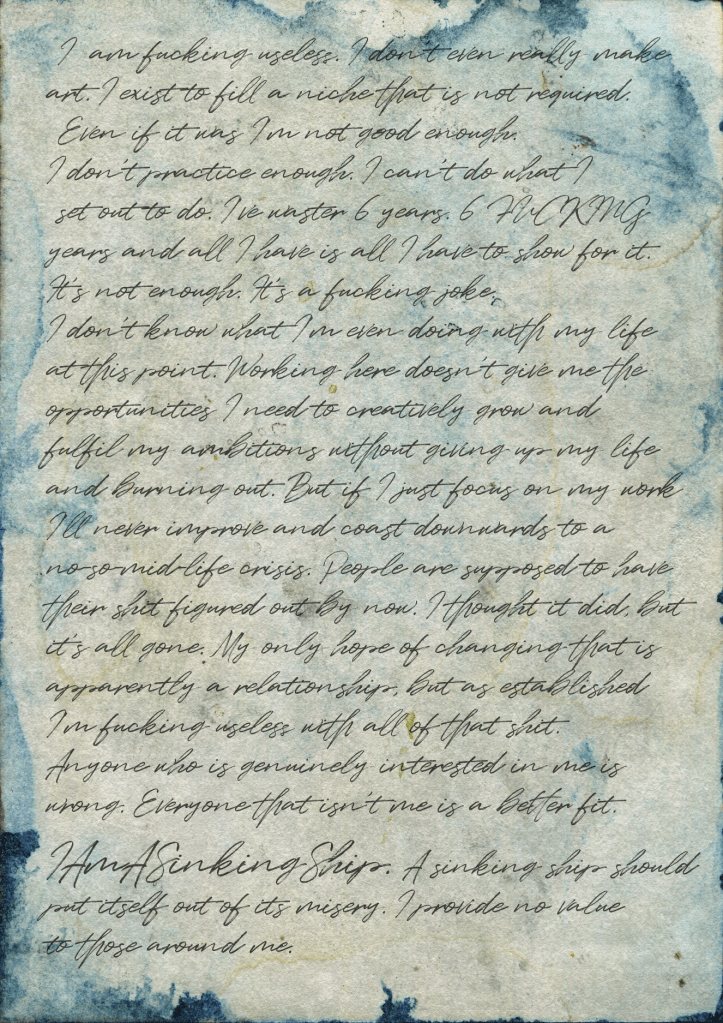 I am fucking useless. I don't even really make
art. I exist to fill a niche that is not required.
Even if it was I'm not good enough.
I don't practice enough. I can't do what I
set out to do. I've waster 6 years. 6 FUCKING
years and all I have is all I have to show for it.
It's not enough. It's a fucking joke.
I don't know what I'm even doing with my life
at this point. Working here doesn't give me the
opportunities I need to creatively grow and
fulfil my ambitions without giving up my life
and burning out. But if I just focus on my work
I'll never improve and coast downwards to a
no-so-mid-life crisis. People are supposed to have
their shit figured out by now. I thought it did, but
it's all gone. My only hope of changing that is
apparently a relationship, but as established
I'm fucking useless with all of that shit.
Anyone who is genuinely interested in me is
wrong. Everyone that isn't me is a better fit.
I Am A Sinking Ship. A sinking ship should
put itself out of its misery. I provide no value
to those around me.